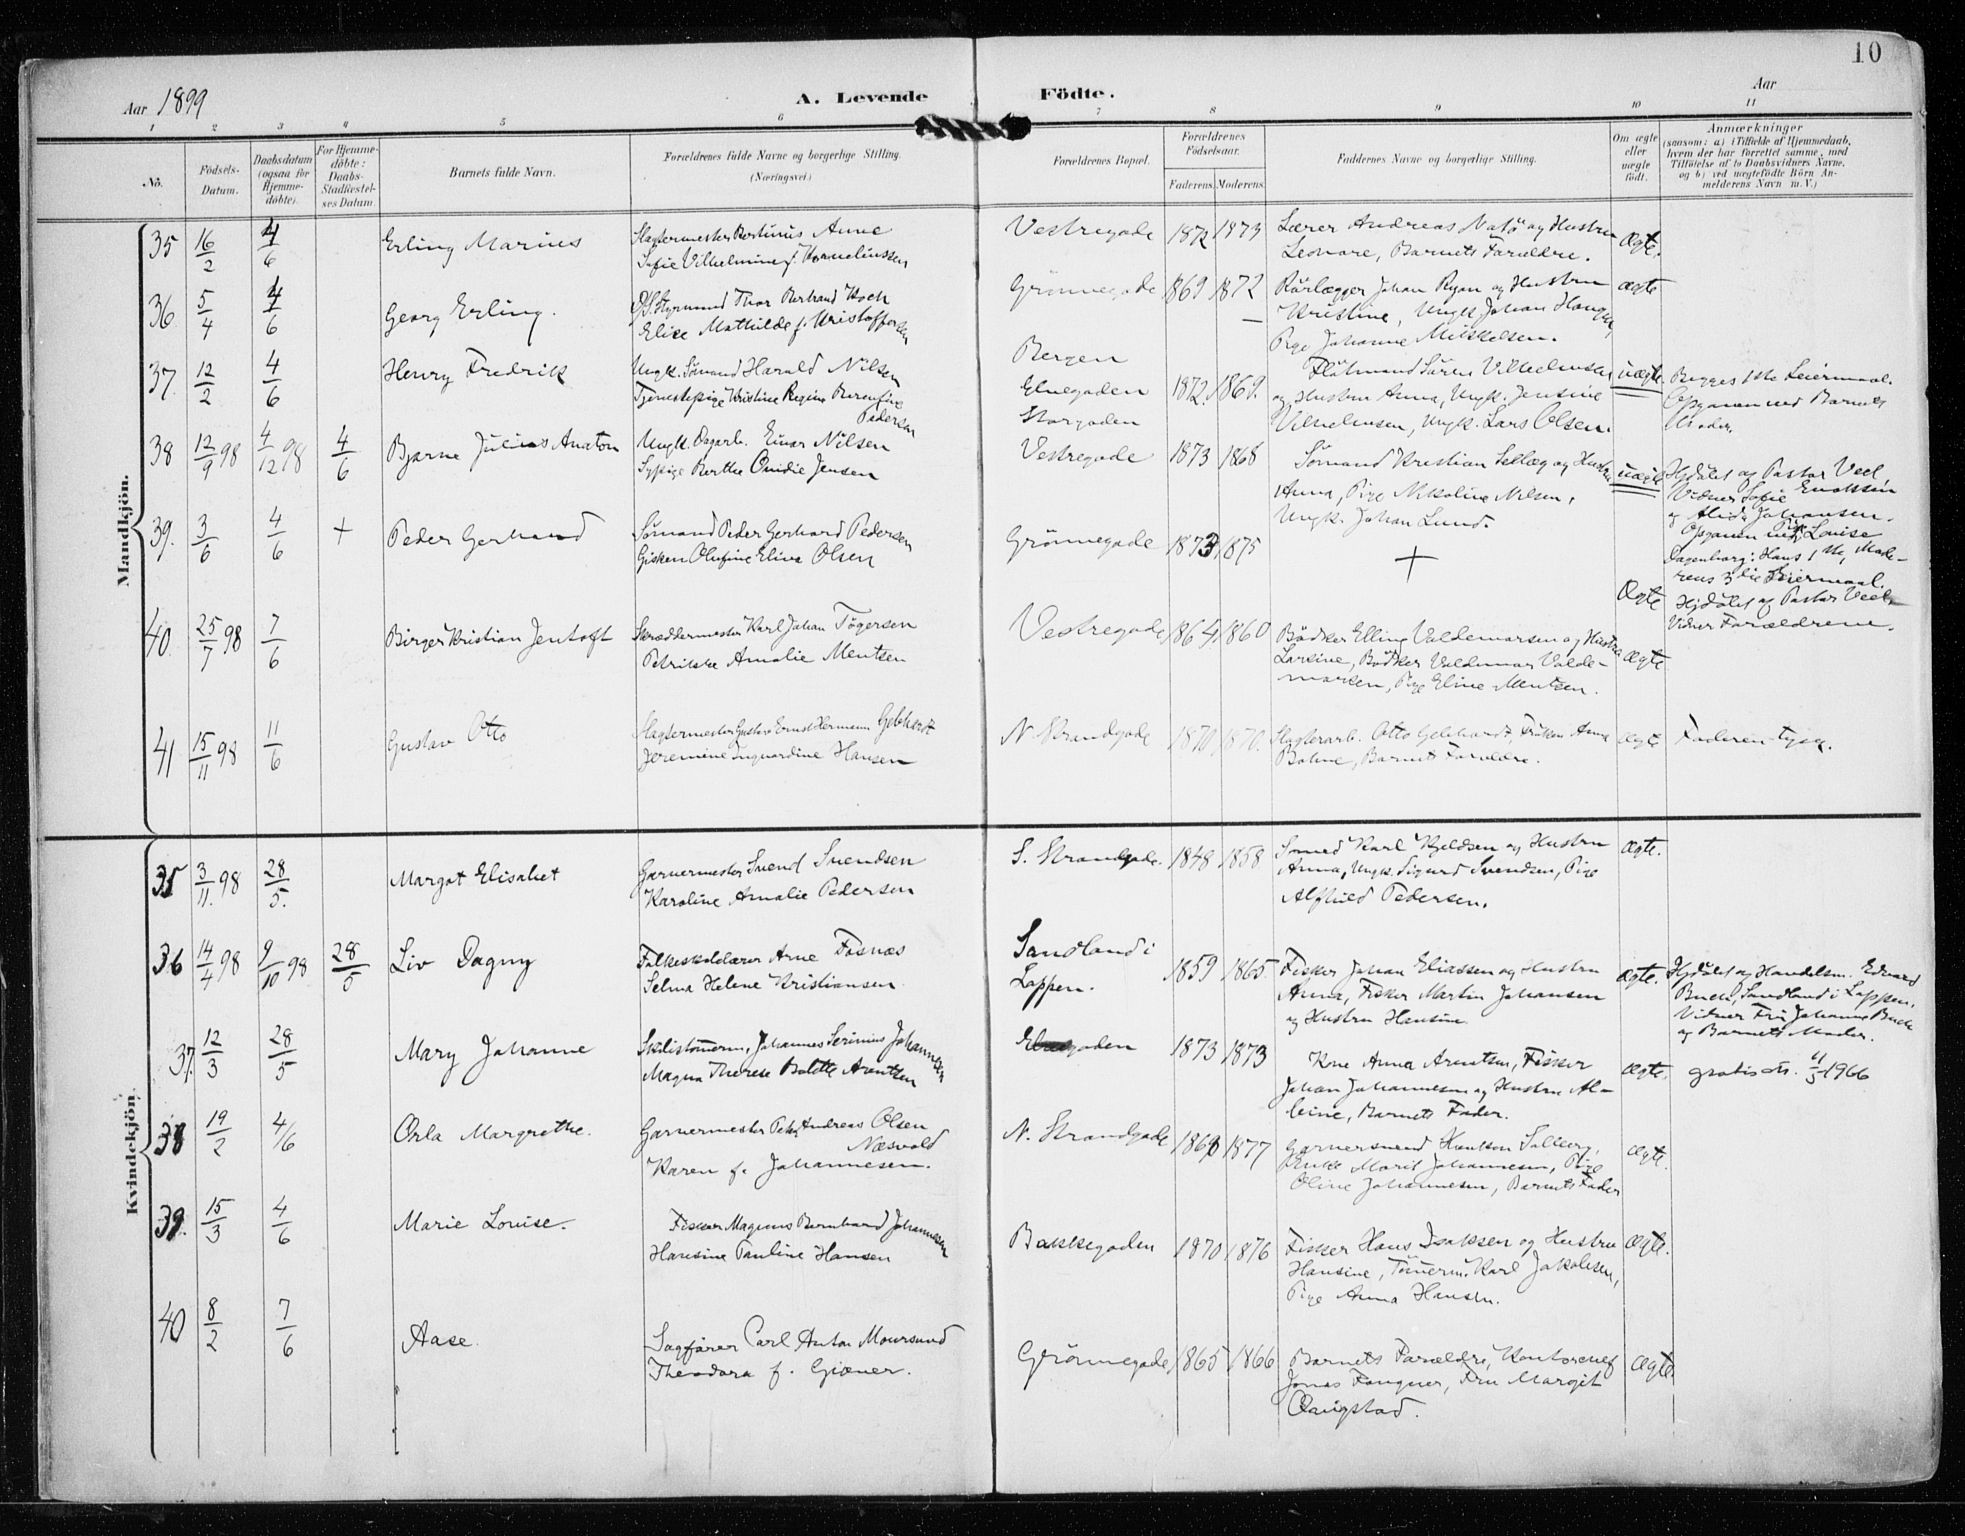 10
Aar 1899
A. Levende Födte.
Aar
1 2 3 4 5 6 7 8 9 10 11
No.
Födsels-
Datum.
Daabsdatum
(ogsaa for
Hjemme-
döbte).
For Hjemme-
döbte:
Daabs-
Stadfæstel-
ses Datum.
Barnets fulde Navn.
Forældrenes fulde Navne og borgerlige Stilling.
(Næringsvei.)
Forældrenes Bopæl.
Forældrenes
Födselsaar.
Faderens. Moderens.
Faddernes Navne og borgerlige Stilling.
Om ægte
eller
uægte
födt.
Anmærkninger
(saasom: a) i Tilfælde af Hjemmedaab,
hvem der har forrettet samme, med
Tilföielse af to Daabsvidners Navne,
og b) ved uægtefödte Börn An-
melderens Navn m. V.)
Mandkjön.
35 16/2 4/6 Erling Marius
Slagtermester Bertinius Anne
Sofie Vilhelmine f. Korneliussen
Vestregade 1872 1873
Lærer Andreas og Hustru
Leonore, Barnets Forældre.
Ægte.
36 5/4 4/6 Georg Erling.
Styrmand Thor Bertrand Koch
Elise Mathilde f. Kristoffersen
Grönnegade 1869 1872
Rörlægger Johan Ryan og Hustru
Kristine, Ungk. Johan
Pige Johanne Mikkelsen.
ægte
37. 12/2 4/6 Henry Fredrik
Ungk. Sömand Harald Nilsen
Tjenestepige Kristine Regine Berentine
Pedersen
Bergen
Elvegaden
Storgaden
1872. 1869.
Flötmand Sören Vilhelmsen
og Hustru Anna, Ungk. Jensine
Vilhelmsen, Ungk. Lars Olsen.
uægte.
Begges 1ste Leiermaal.
Opgaven ved Barnets
Moder.
38 12/9 98 4/12 98 4/6 Bjarne Julius Anaton
Ungk. Dagarb. Einar Nilsen
Sypige Berthe Ovidie Jensen
Vestregade 1873 1868
Sömand Kristian Selläg og Hustru
Anna, Pige Nikoline Nilsen,
Ungk. Johan Lund.
uægte
Hjdöbt af Pastor Veel
Vidner Sofie Enoksen
og Alida Johansen.
Opgaven ved Pige Louise
Dagenborg. Hans 1ste, Mode-
rens 3die Leiermaal.
39. 3/6 4/6 + Peder Gerhard
Sömand Peder Gerhard Pedersen
Gisken Olufine Eline Olsen
Grönnegade 1873 1875
+
Ægte
Hjdöbt af Pastor Veel.
Vidner Forældrene.
40. 25/7 98 7/6 Birger Kristian Jentoft
Skrædermester Karl Johan Tögersen
Petrikke Amalie Mentsen
Vestregade 1864. 1860
Bödker Elling Valdemarsen og Hustru
Larsine, Bödker Valdemar Valde-
marsen, Pige Eline Mentsen.
Ægte
41 15/11 98 11/6 Gustav Otto
Slagtermester Gustav Ernst Hermann Gebhardt
Jeremine Ingvardine Hansen
N. Strandgade 1870 1870.
Slagterarb. Otto Gebhardt, Fröken Anna
Bohne, Barnets Forældre.
ægte
Faderen tysk.
Kvindekjön.
35 3/11. 98 28/5. Margot Elisabet
Garvermester Svend Svendsen
Karoline Amalie Pedersen
S. Strandgade. 1848 1858
Smed Karl Kjeldsen og Hustru
Anna, Ungk. Sigurd Svendsen, Pige
Alfhild Pedersen.
Ægte.
36 14/4 98 9/10 98 28/5 Liv Dagny
Folkeskolelærer Arne Fosnæs
Selma Helene Kristiansen.
Sandland i
Loppen.
1859 1865.
Fisker Johan Eliassen og Hustru
Anna, Fisker Martin Johansen
og Hustru Hansine.
Ægte.
Hjdöbt af Handelsm. Edvard
Buch, Sandland i Loppen.
Vidner Fru Johanna Buch
og Barnets Moder.
37. 12/3 28/5 Mary Johanne
Skibstömerm. Johannes Serinius Johannesen
Magna Therese Bolette Arentsen
Elvegaden 1873 1873
Kone Anna Arentsen, Fisker
Johan Johannesen og Hustru Al-
bine, Barnets Fader.
Ægte.
gratis att. 11/5 1966
38 19/2 4/6 Orla Margrethe.
Garvermester Peter Andreas Olsen
Næsvold
Karen f. Johannesen.
N. Strandgade 1869 1877
Garversvend Solberg,
Enke Marit Johannesen, Pige
Oline Johannesen, Barnets Fader
Ægte.
39. 15/3 4/6 Marie Louise.
Fisker Magnus Bernhard Johannesen
Hansine Pauline Hansen
Bakkegaden 1870 1876
Fisker Hans Isaksen og Hustru
Hansine, Tömerm. Karl Jakobsen,
Pige Anna Hansen.
Ægte.
40 8/2 7/6 Aase.
Sagförer Carl Anton Moursund
Theodora f. Giæver.
Grönnegade 1865 1866
Barnets Forældre, Kontorchef
Jonas Fougner, Fru Margit
Qvigstad.
Ægte.